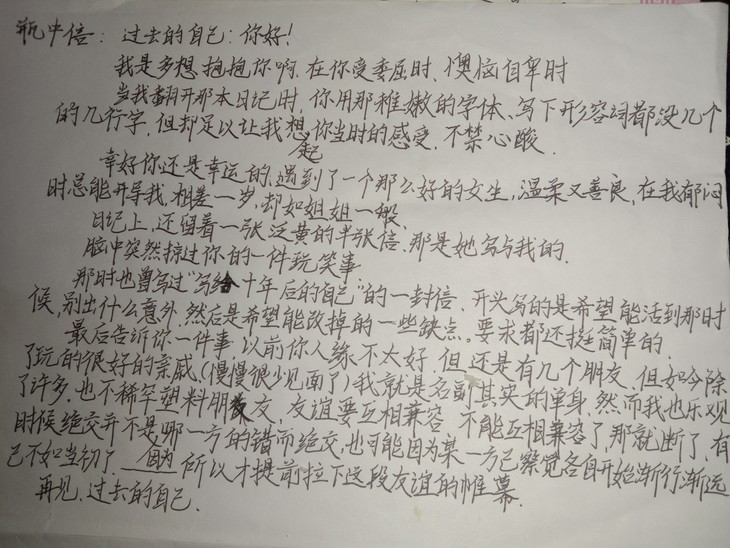 瓶中信：过去的自己：你好！
我是多想抱抱你啊，在你受委屈时、懊恼自卑时
当我翻开那本日记时，你用那稚嫩的字体、写下形容词都没几个
的几行字，但却足以让我想起你当时的感受，不禁心酸．
幸好你还是幸运的，遇到了一个那么好的女生，温柔又善良，在我郁闷
时总能开导我，相差一岁，却如姐姐一般、
日记上，还留着一张泛黄的半张信，那是她写与我的．
脑中突然掠过你的一件玩笑事
那时也曾写过“写给十年后的自己”的一封信．开头写的是希望能活到那时
候，别出什么意外，然后是希望能改掉的一些缺点。要求都还挺简单的．
最后告诉你一件事，以前你人缘不太好，但还是有几个朋友，但如今除
了玩的很好的亲戚，（慢慢很少见面了）我就是名副其实的单身，然而我也乐观
了许多，也不稀罕塑料朋友，友谊要互相兼容，不能互相兼容了，那就断了，有
时候绝交并不是哪一方的错而绝交，也可能因为某一方已察觉各自开始渐行渐远
已不如当初了，所以才提前拉下这段友谊的帷幕．
再见，过去的自己．